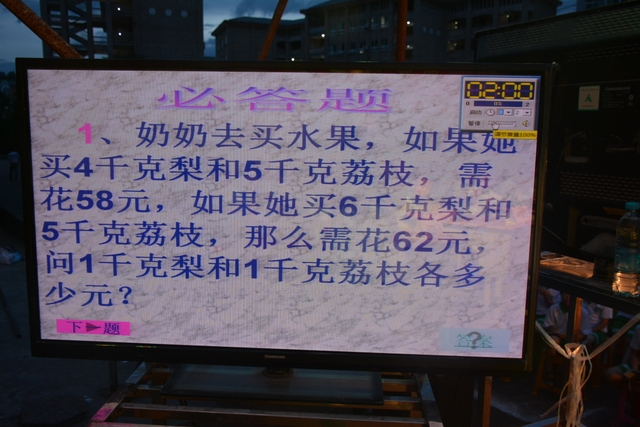 必答题
02:00
1、奶奶去买水果，如果她
买4千克梨和5千克荔枝，需
花58元，如果她买6千克梨和
5千克荔枝，那么需花62元，
问1千克梨和1千克荔枝各多
少元？
下一题
答案